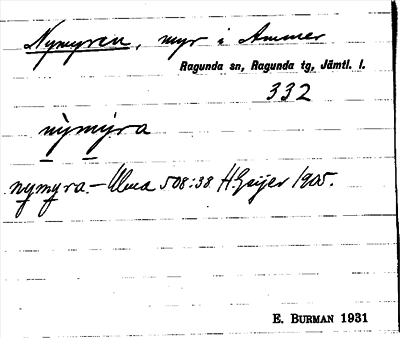 Nymyren, myr i Ammer
Ragunda sn, Ragunda tg, Jämtl. l.
332
nỳmýra
nymyra. – Ulma 508:38 H. Geijer 1905.
E. BURMAN 1931